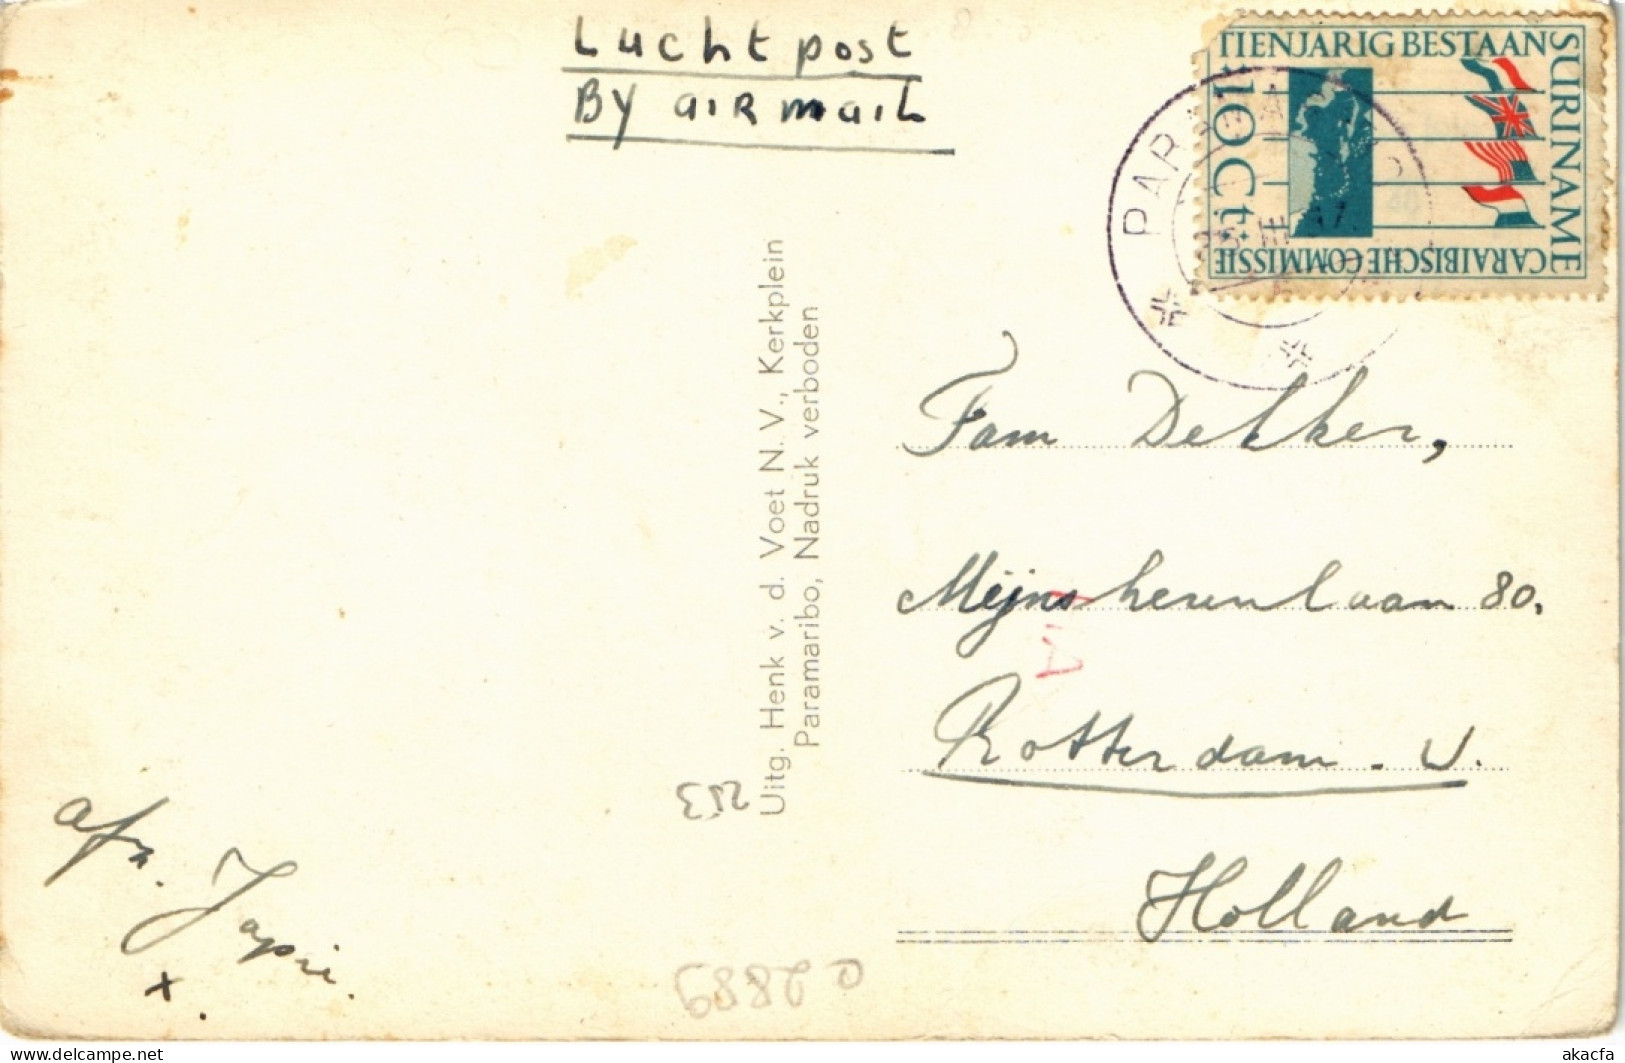 Luchtpost
By airmail
TIENJARIG BESTAAN
SURINAME
CARAIBISCHE COMMISSIE
10Ct
Uitg. Henk v. d. Voet N. V., Kerkplein
Paramaribo, Nadruk verboden
Fam Dekker,
Mijnsherenlaan 80.
Rotterdam. W.
Holland
afz. Japie.
x.
213
c2889
akacfa